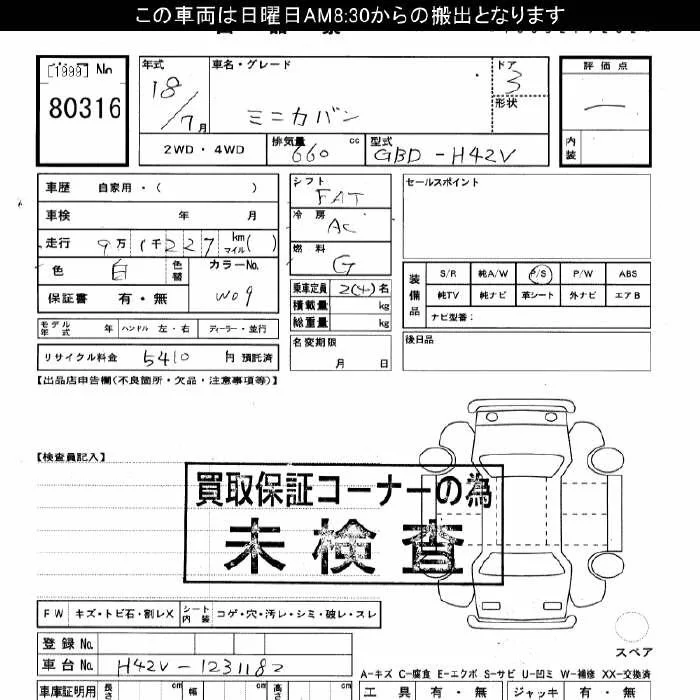 この車両は日曜日AM8:30からの搬出となります
[1999] No
80316
年式
18/7月
車名・グレード
ミニカバン
ドア
3
形状
評価点
内装
2WD・4WD
排気量
660 cc
型式
GBD-H42V
車歴 自家用・( )
車検 年 月
走行 9万1千227 km マイル( )
色 白 色替
カラーNo.
W09
保証書 有・無
モデル年式 年 ハンドル 左・右 ディーラー・並行
リサイクル料金 5410 円 預託済
シフト
FAT
冷房
AC
燃料
G
乗車定員 2(4)名
積載量 kg
総重量 kg
名変期限
月 日
セールスポイント
装備品
S/R 純A/W P/S P/W ABS
純TV 純ナビ 革シート 外ナビ エアB
ナビ型番:
後日品
【出品店申告欄(不良箇所・欠品・注意事項等)】
【検査員記入】
買取保証コーナーの為
未検査
FW キズ・トビ石・割レX シート内装 コゲ・穴・汚レ・シミ・破レ・スレ
登録No.
車台No. H42V-1231182
車庫証明用 長さ cm 幅 cm 高さ cm
スペア
A-キズ C-腐食 E-エクボ S-サビ U-凹ミ W-補修 XX-交換済
工具 有・無 ジャッキ 有・無